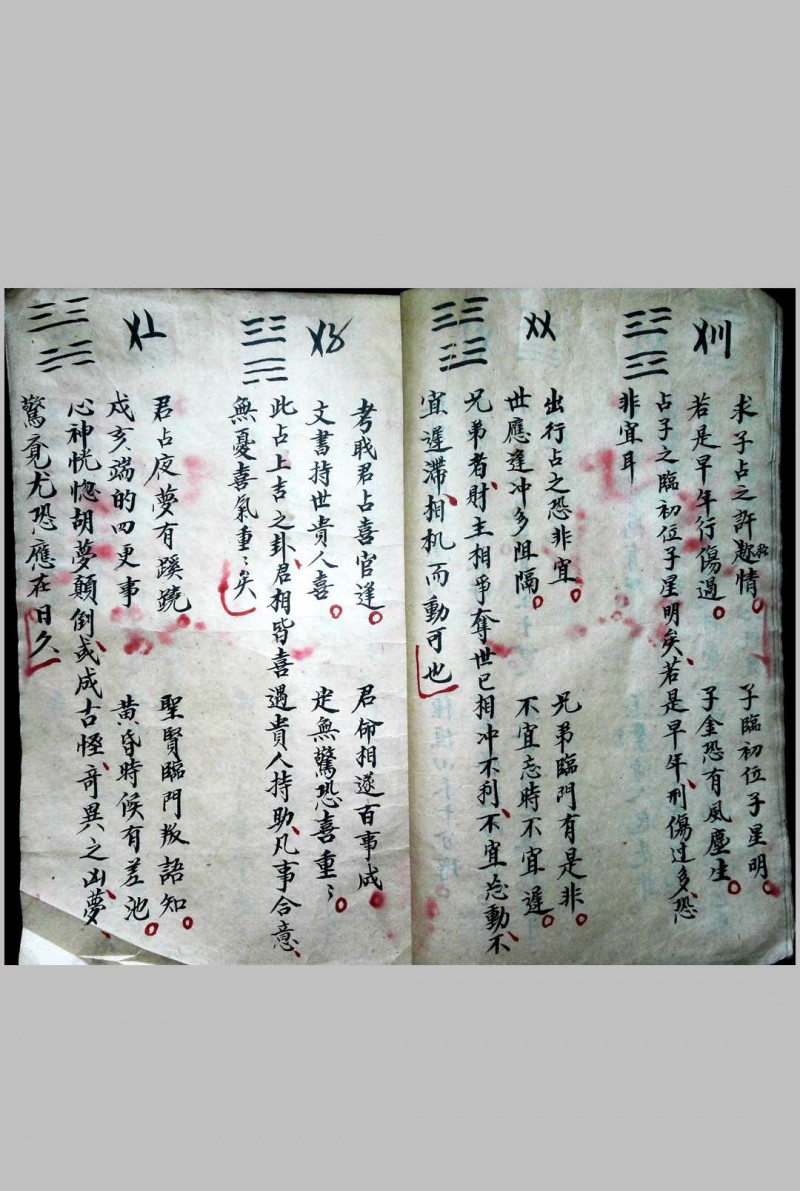 〤〣
求子占之許趂情 子臨初位子星明
若是早年行傷過 子金恐有風塵生
占子之臨初位子星明矣若是早年刑傷过多恐
非宜耳
〤〤
出行占之恐非宜 兄弟臨門有是非
世應逢冲多阻隔 不宜忘時不宜遲
兄弟者財主相爭奪世已相冲不利不宜忩動不
宜遲滯相机而動可也
〤〥
考戝君占喜官運 君命相遂百事成
文書持世貴人喜 定無驚恐喜重〻
此占上吉之卦君相皆喜遇貴人持助凡事合意
無憂喜氣重〻矣
〤〦
君占夜夢有蹊蹺 聖賢臨門報語知
戌亥端的四更事 黄昏時候有差池
心神恍惚胡夢顛倒或成古怪奇異之凶夢
驚覓尤恐應在日久